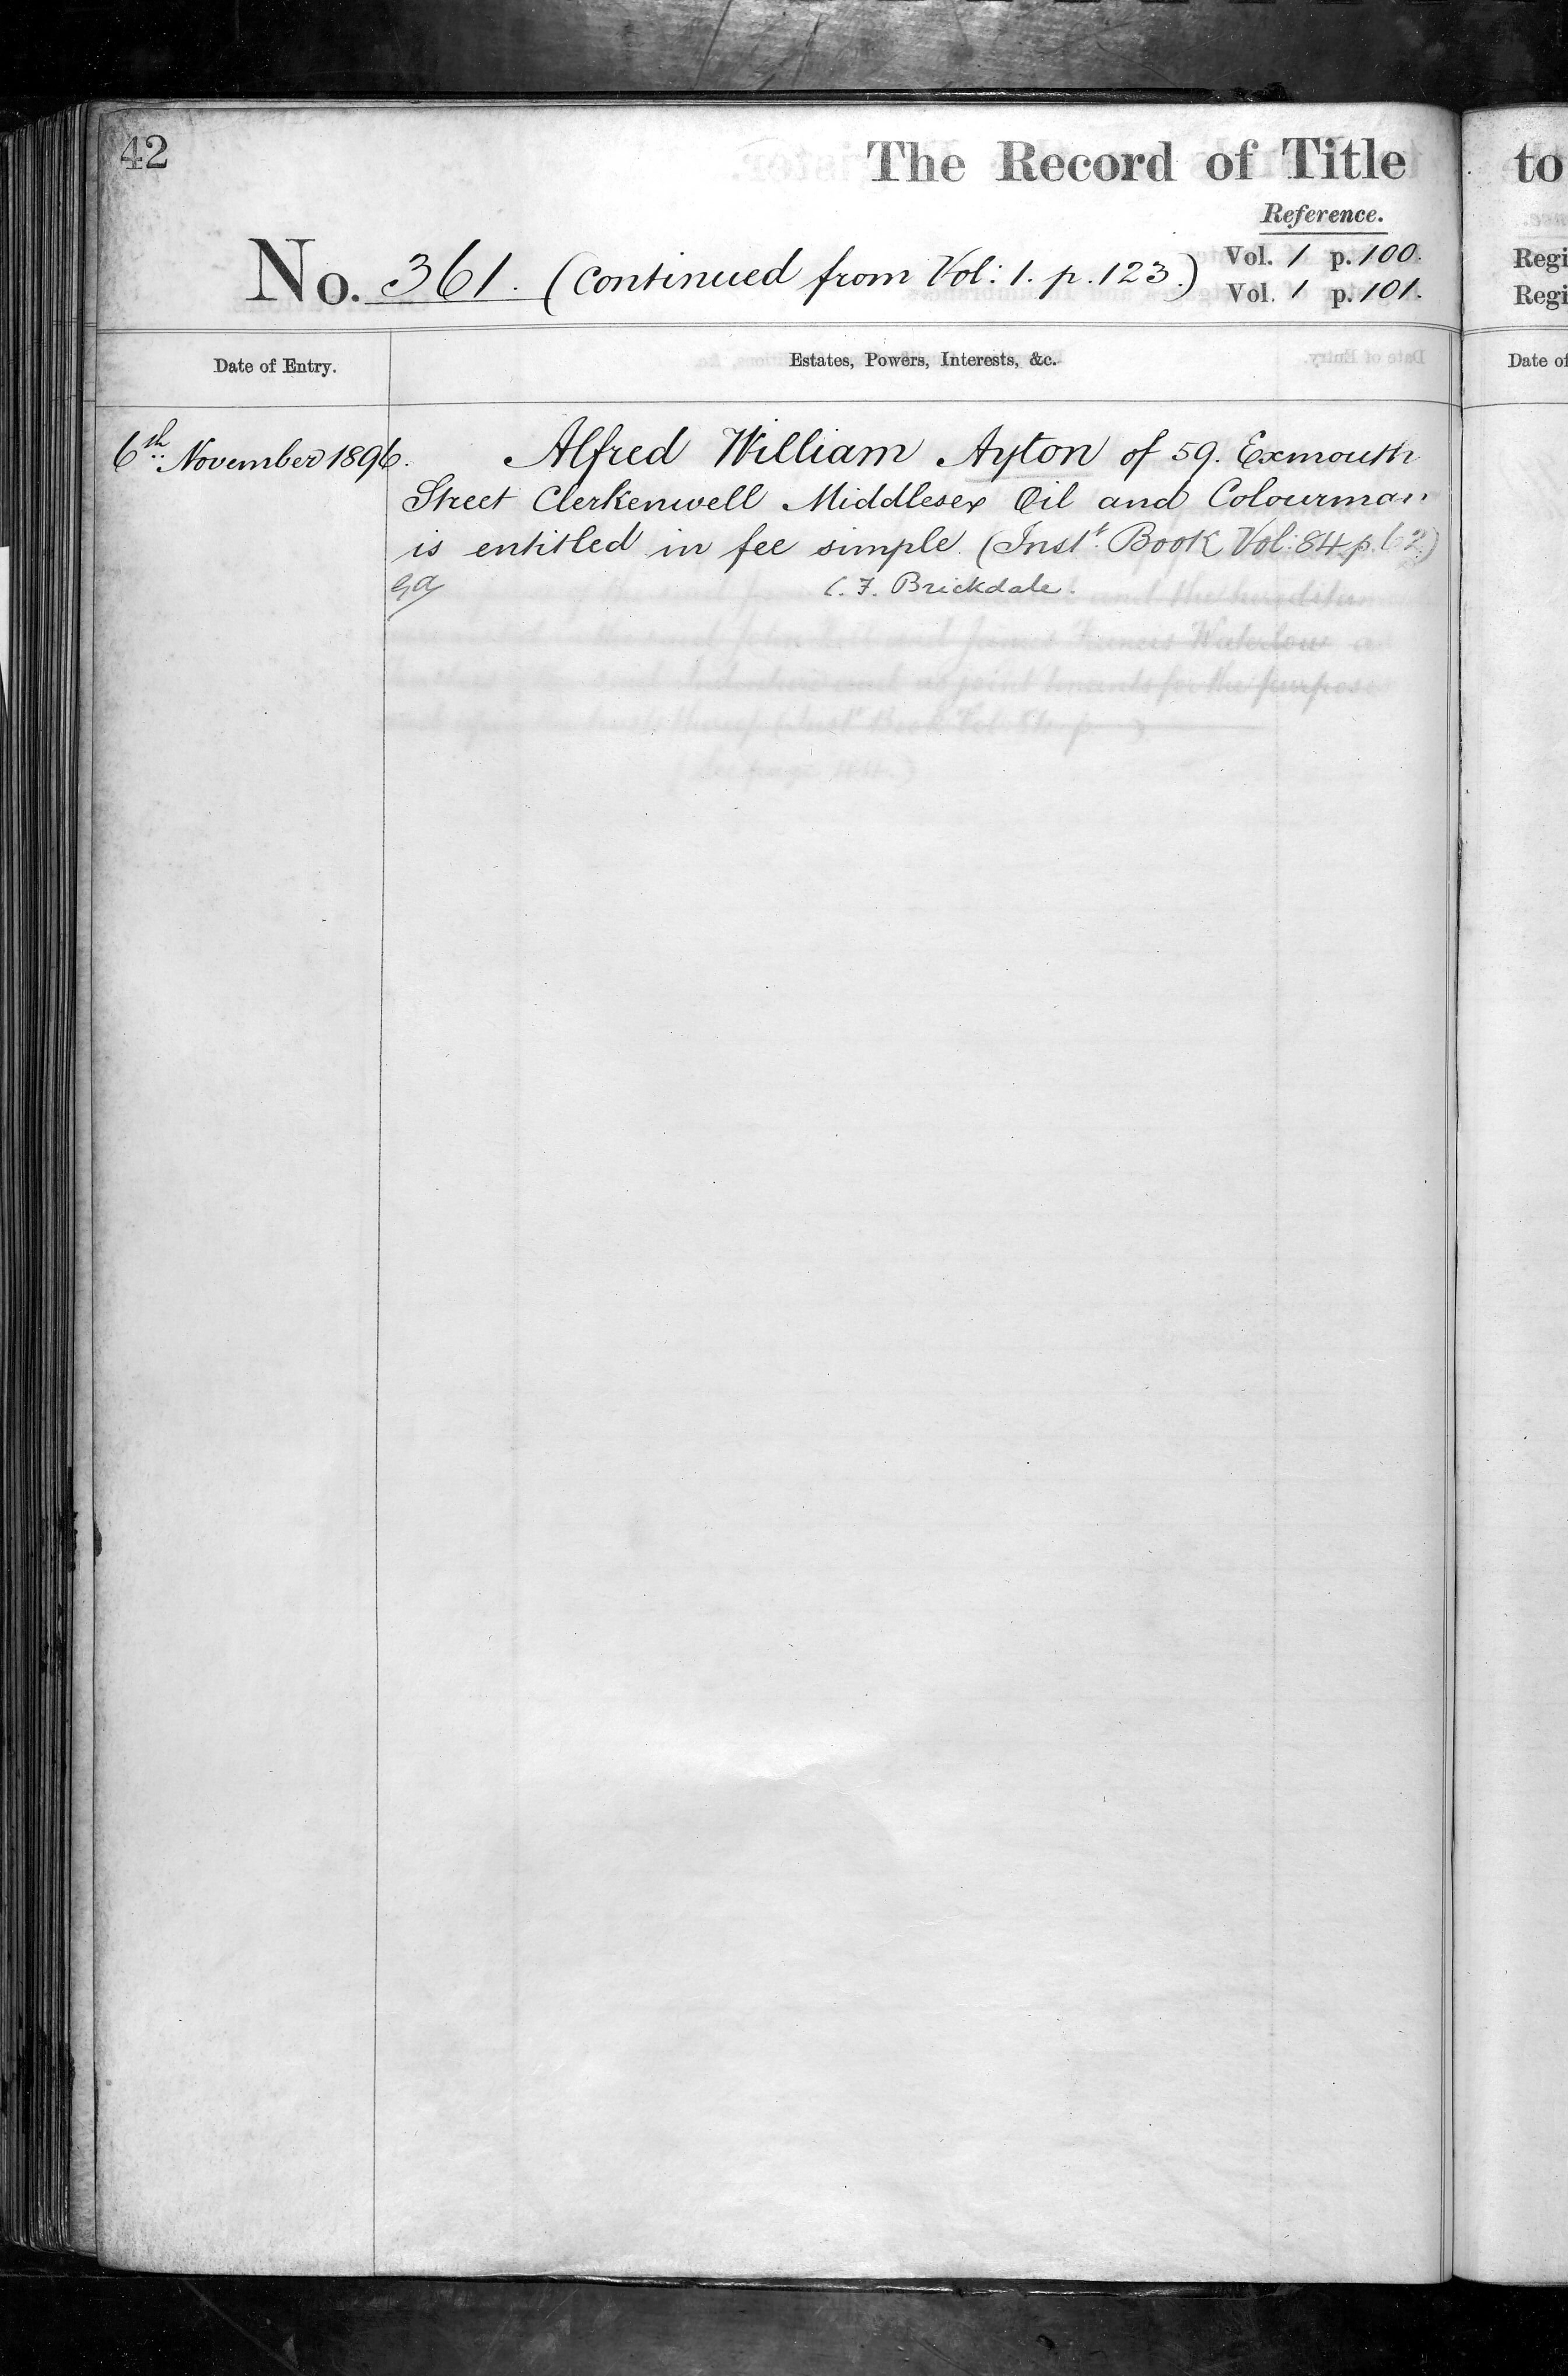 42
The Record of Title
Reference.
No. 361. (Continued from Vol: 1. p. 123.)
Vol. 1 p. 100.
Vol. 1 p. 101.
Date of Entry.
Estates, Powers, Interests, &c.
6th November 1896.
Alfred William Ayton of 59. Exmouth
Street Clerkenwell Middlesex Oil and Colourman
is entitled in fee simple. (Instt. Book Vol: 84 p. 62)
C. F. Brickdale.
to
Regi
Regi
Date of